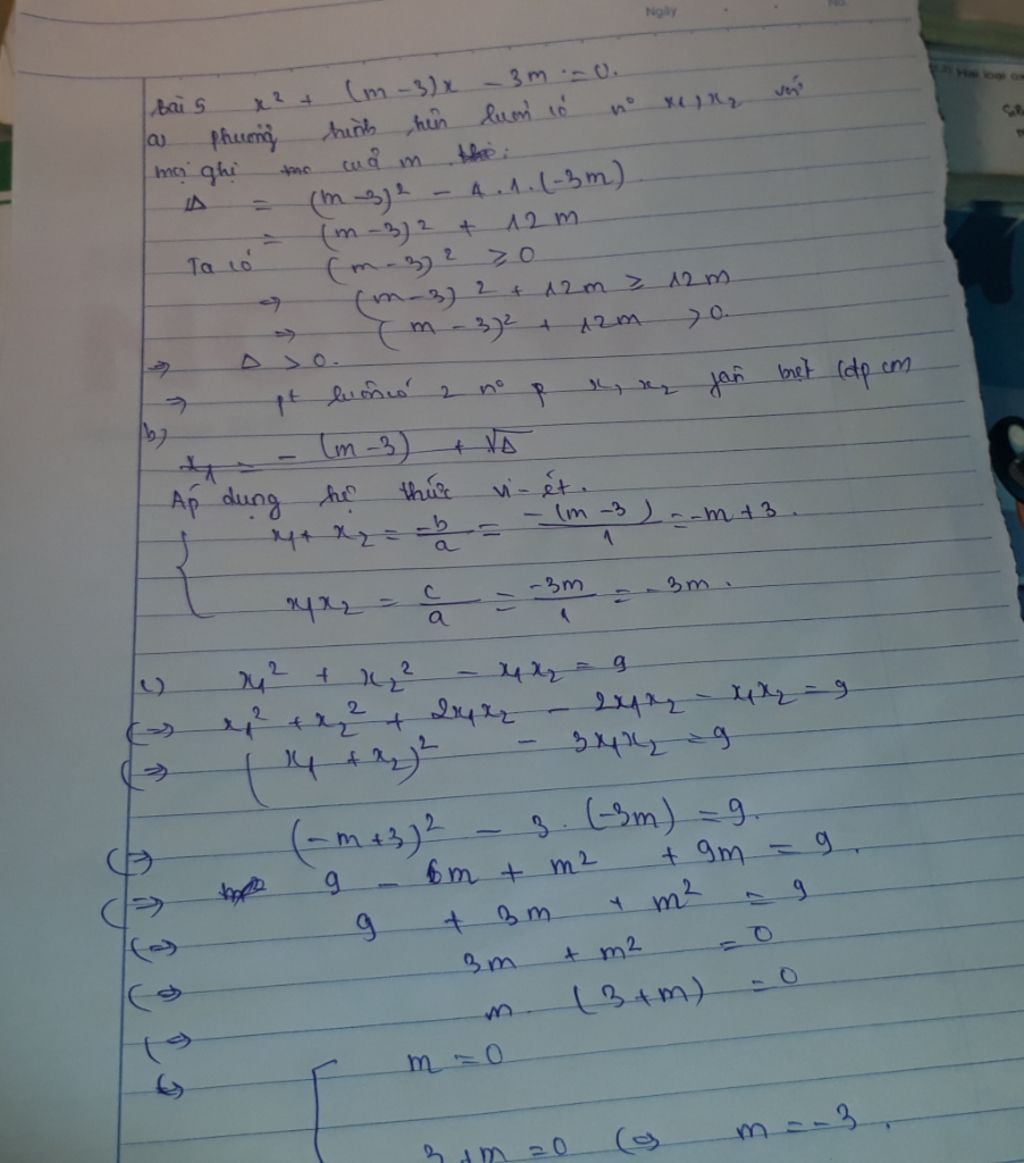 Ngày
No.
Hai loại
bài 5 x² + (m-3)x - 3m = 0.
a) phương trình trên luôn có n⁰ x₁, x₂ với
mọi ghị của m
Δ = (m-3)² - 4.1.(-3m)
= (m-3)² + 12m
Ta có (m-3)² ≥ 0
=> (m-3)² + 12m ≥ 12m
=> (m-3)² + 12m > 0.
=> Δ > 0.
=> pt luôn có 2 n⁰ p x₁, x₂ fân biệt (đpcm
b)
x₁ = -(m-3) + √Δ
Áp dụng hệ thức vi-ét.
{ x₁ + x₂ = -b/a = -(m-3)/1 = -m+3.
x₁x₂ = c/a = -3m/1 = -3m.
c) x₁² + x₂² - x₁x₂ = 9
(=> x₁² + x₂² + 2x₁x₂ - 2x₁x₂ - x₁x₂ = 9
(=> (x₁ + x₂)² - 3x₁x₂ = 9
(=> (-m+3)² - 3.(-3m) = 9.
(=> 9 - 6m + m² + 9m = 9.
(=> 9 + 3m + m² = 9
(=> 3m + m² = 0
(=> m.(3+m) = 0
(=> [ m = 0
3+m = 0 (=> m = -3.